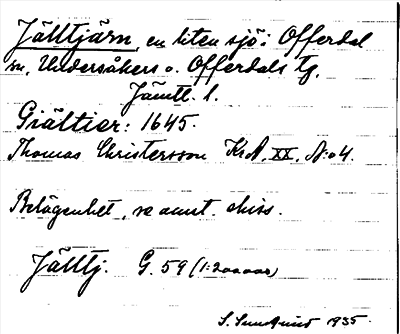 Jälltjärn, en liten sjö i Offerdal
sn, Undersåkers o. Offerdals tg,
Jämtl. l.
Giältier: 1645.
Thomas Christersson KrA, XX, N:o 4.
Belägenhet, se annt. skiss.
Jälltj. G. 59 (1:200000)
S. 1935.